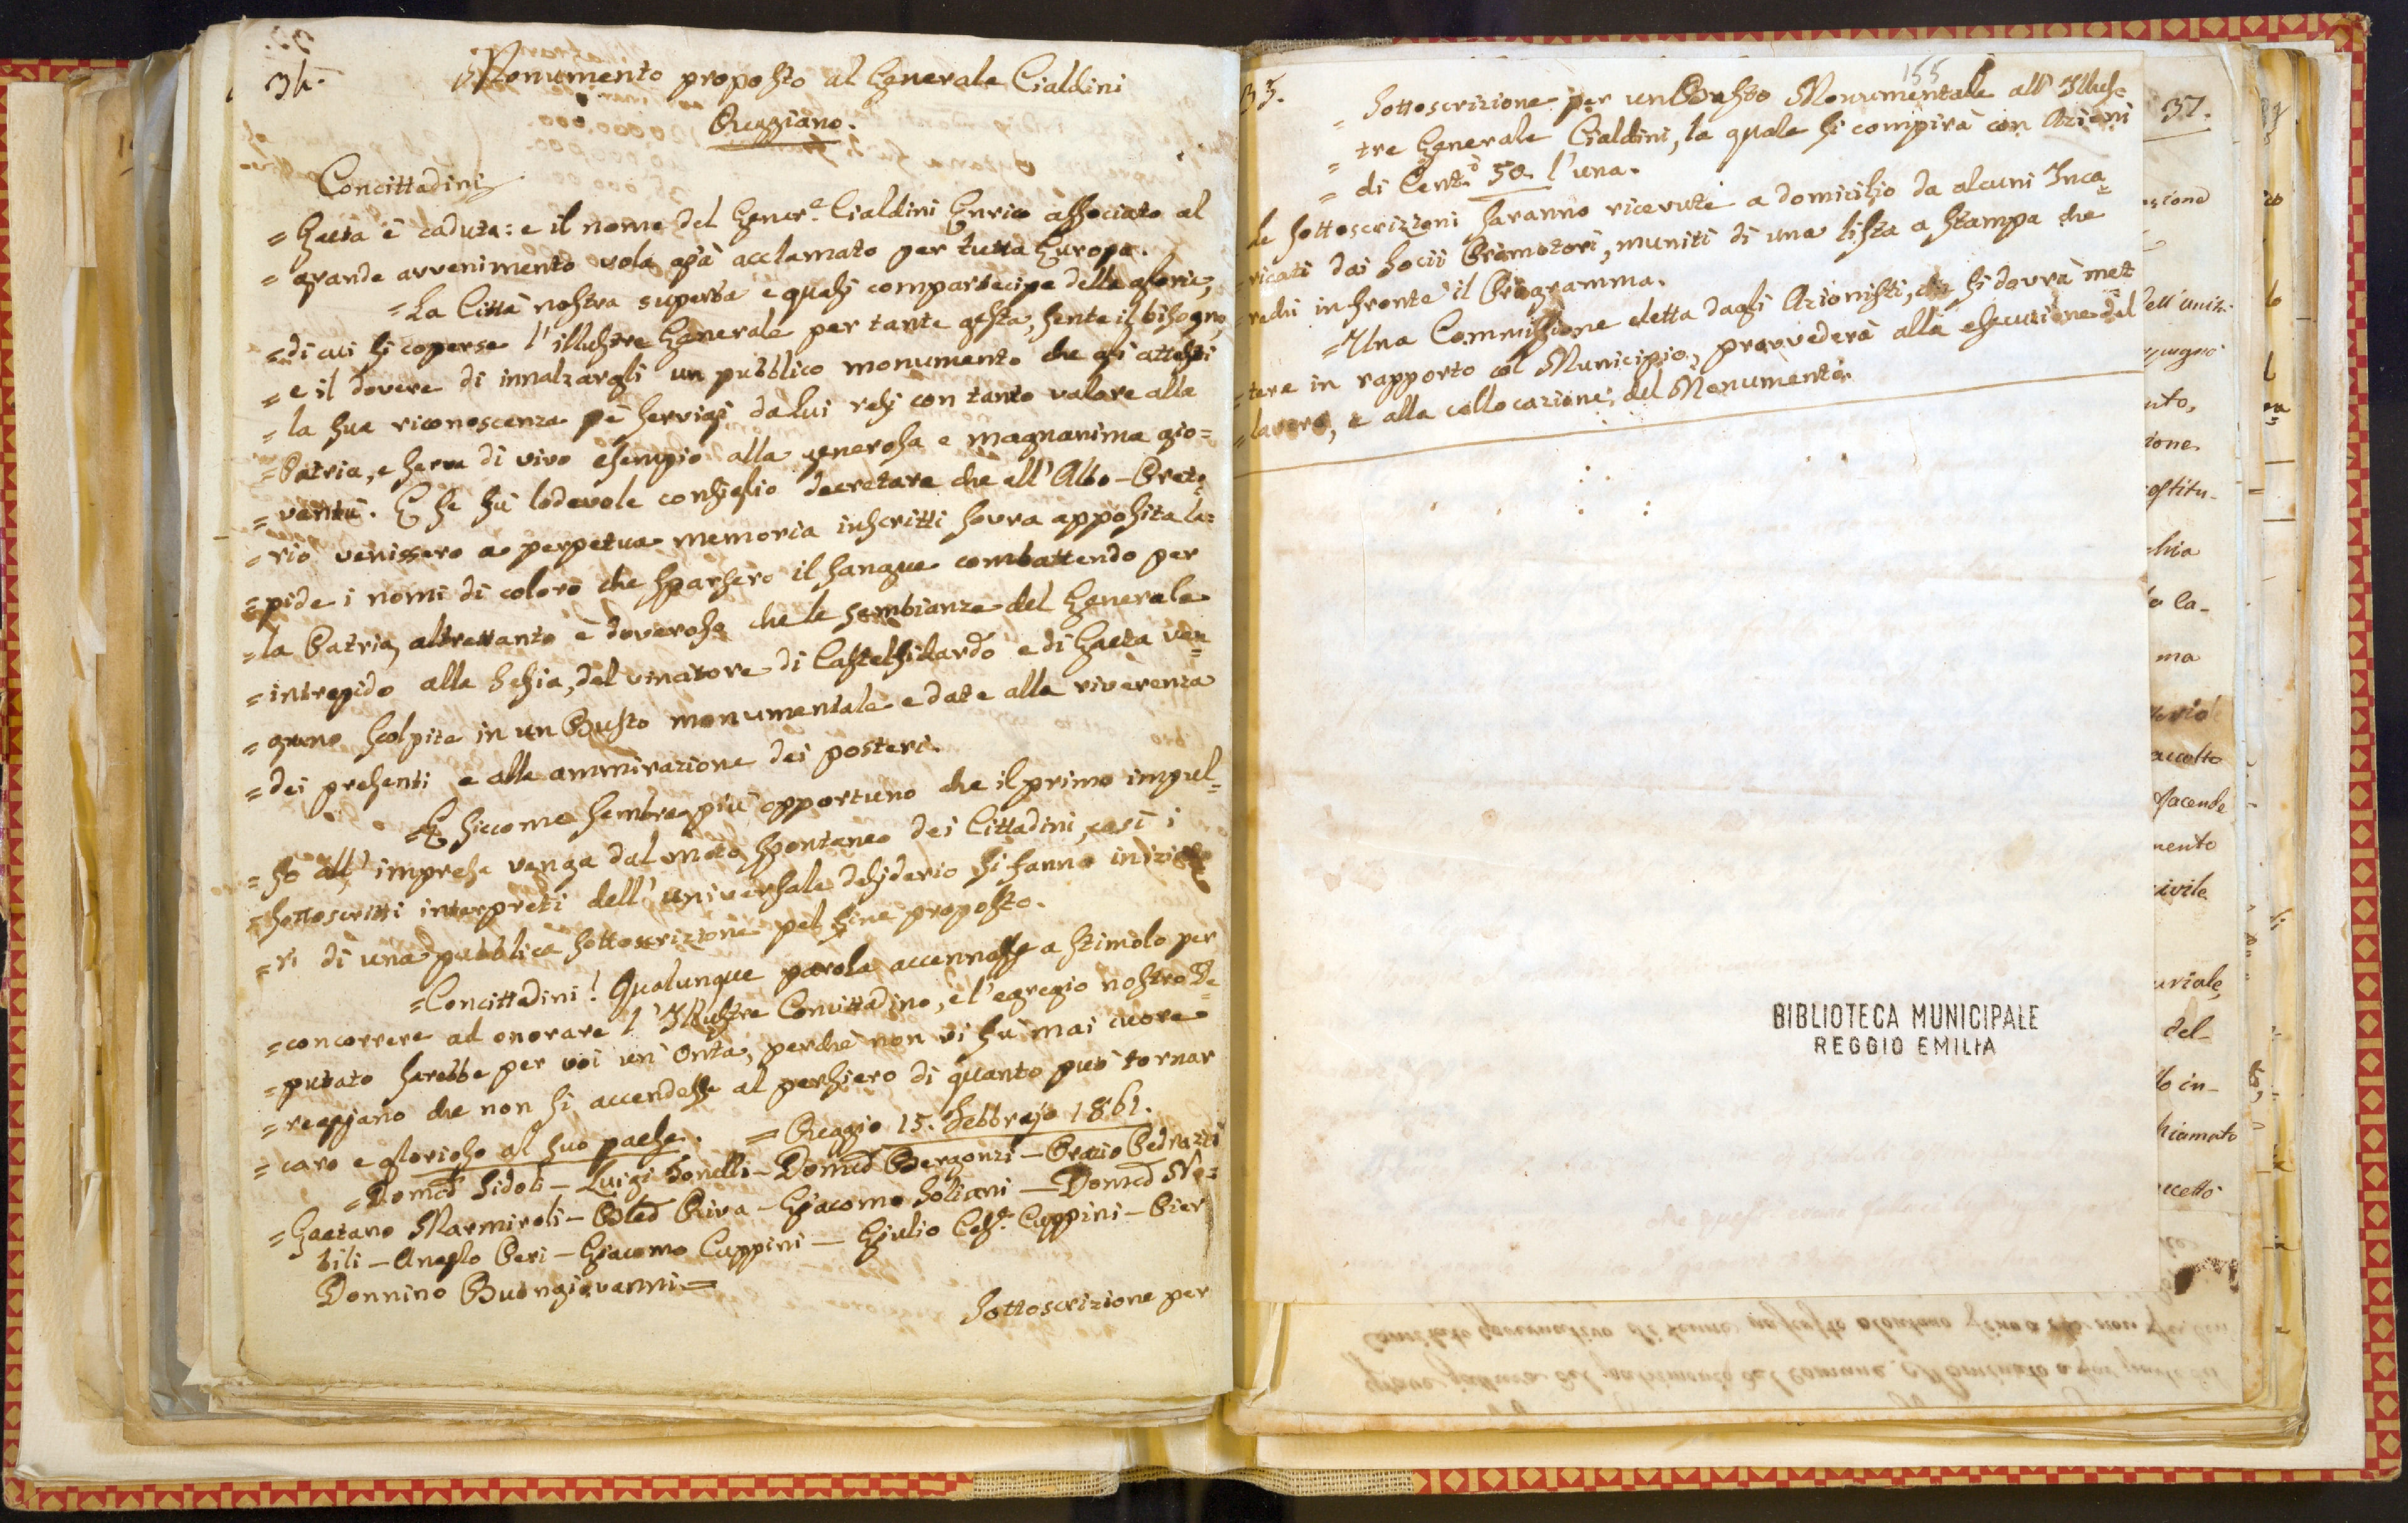 34.
Monumento proposto al Generale Cialdini
Reggiano.
Concittadini
= Gaeta è caduta: e il nome del Gener.e Cialdini Enrico associato al
= grande avvenimento vola già acclamato per tutta Europa.
= La Città nostra superba e quasi compartecipe delle glorie,
= di cui si coperse l'illustre Generale per tante gesta, sente il bisogno,
= e il dovere di innalzargli un pubblico monumento che gli attesti
= la sua riconoscenza pe' servigi da Lui resi con tanto valore alla
= Patria, e serva di vivo esempio alla generosa e magnanima gio=
= ventù. E se fu lodevole consiglio decretare che all'Albo-Preto=
= rio venissero a perpetua memoria inscritti sovra apposita la=
= pide i nomi di coloro che sparsero il sangue combattendo per
= la Patria, altrettanto è doveroso che le sembianze del Generale
= intrepido alla Sesia, del vincitore di Castelfidardo e di Gaeta ven=
= gano scolpite in un Busto monumentale e date alla riverenza
= dei presenti e alla ammirazione dei posteri.
= E siccome sembra più opportuno che il primo impul=
= so all'impresa venga dal moto spontaneo dei Cittadini, così i
= sottoscritti interpreti dell'universale desiderio si fanno iniziato
= ri di una pubblica sottoscrizione pel fine proposto.
= Concittadini! Qualunque parola accennasse a stimolo per
= concorrere ad onorare l'Illustre Concittadino, e l'egregio nostro De=
= putato sarebbe per voi un'Onta, perchè non vi fu mai cuore
= reggiano che non si accendesse al pensiero di quanto può tornar
= caro e glorioso al suo paese. = Reggio 15. Febbrajo 1861.
= Domco Sidoli – Luigi Sonelli – Domco Bergonzi – Prazio Pedrazzi
= Gaetano Marmiroli – Riva – Giacomo Soliani – Domco No=
bili – Angelo Peri – Giacomo Cuppini – Giulio Ces.e Cuppini – Pier
Donnino Buongiovanni =
Sottoscrizione per
35.
155
= Sottoscrizione per un Busto Monumentale all'Illus=
= tre Generale Cialdini, la quale si compirà con Azioni
= di Cent.i 50. l'una.
Le sottoscrizioni saranno ricevute a domicilio da alcuni Inca=
= ricati dai Socii Promotori, muniti di una lista a stampa che
= rechi in fronte il Programma.
= Una Commissione eletta dagli Azionisti, che si dovrà met
= tere in rapporto col Municipio, provvederà alla esecuzione del
= lavoro, e alla collocazione del Monumento.
BIBLIOTECA MUNICIPALE
REGGIO EMILIA
37.
nto,
ione
ostitu-
chia
la-
ma
accolto
facende
mento
civile
del
in-
hiamato